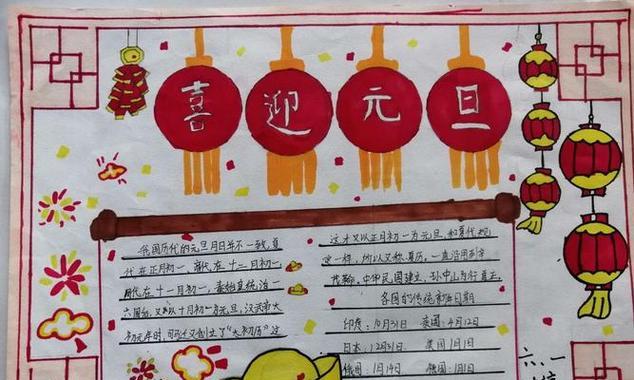 喜迎元旦
我国历代的元旦月日并不一致。夏
代在正月初一，商代在十二月初一，
周代在十一月初一，秦始皇统治一
六国后，又以十月初一为元旦，汉武帝太
初元年时，司马迁又创立了“太初历”这
这才又以正月初一为元旦，和夏代规
定一样，所以又称
中华民国建立，孙中山为行夏正，
各国的传统新年日期
印度：10月31日
4月12日
日本：12月31日
美国1月1日
俄国：1月14日
1月1日
六、一